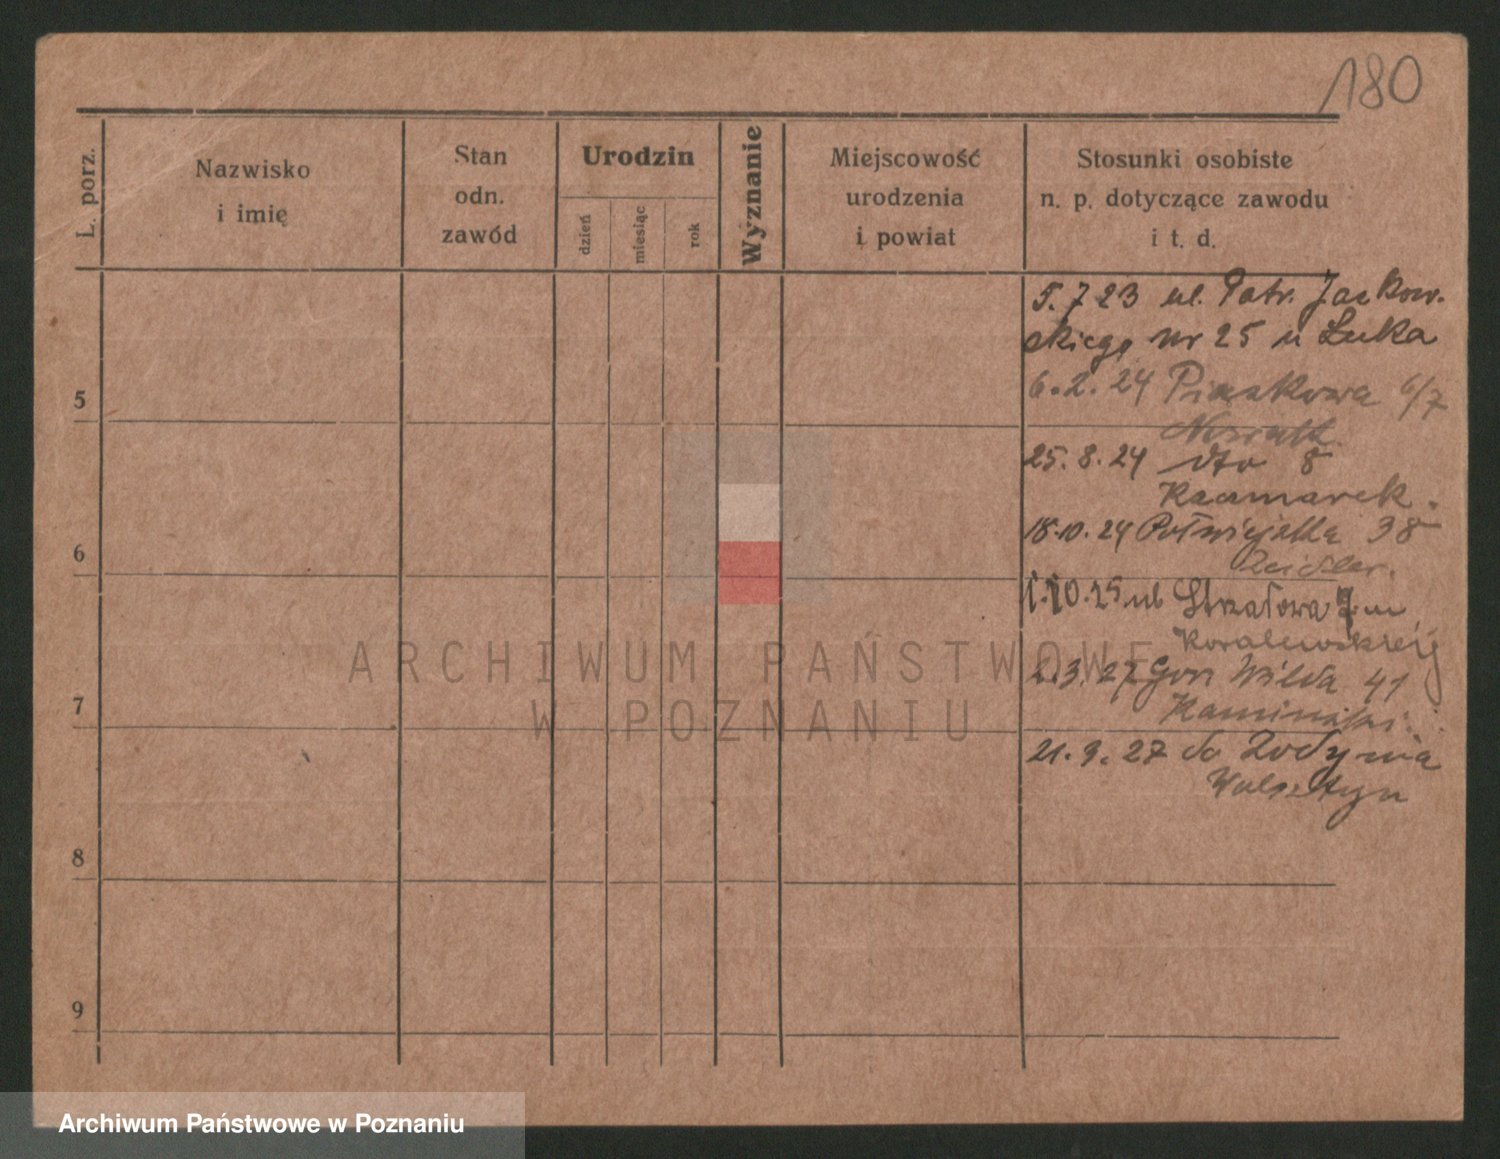 180
L. porz.
Nazwisko
i imię
Stan
odn.
zawód
Urodzin
dzień
miesiąc
rok
Wyznanie
Miejscowość
urodzenia
i powiat
Stosunki osobiste
n. p. dotyczące zawodu
i t. d.
5. 7 23 ul. Patr. Jackow-
skiego nr 25 u Luka
6. 2. 24 Piaskowa 6/7
5
25. 8. 24 dto 8
Kacmarek.
18.10.24 Półwiejska 38
6
1.10.25 ul Strzałowa 7 m
Kowalewskiej
2.3.27 Gór Wilda 41
Kamiński
7
21. 9. 27 do
Wolsztyn
8
9
ARCHIWUM PAŃSTWOWE
W POZNANIU
Archiwum Państwowe w Poznaniu